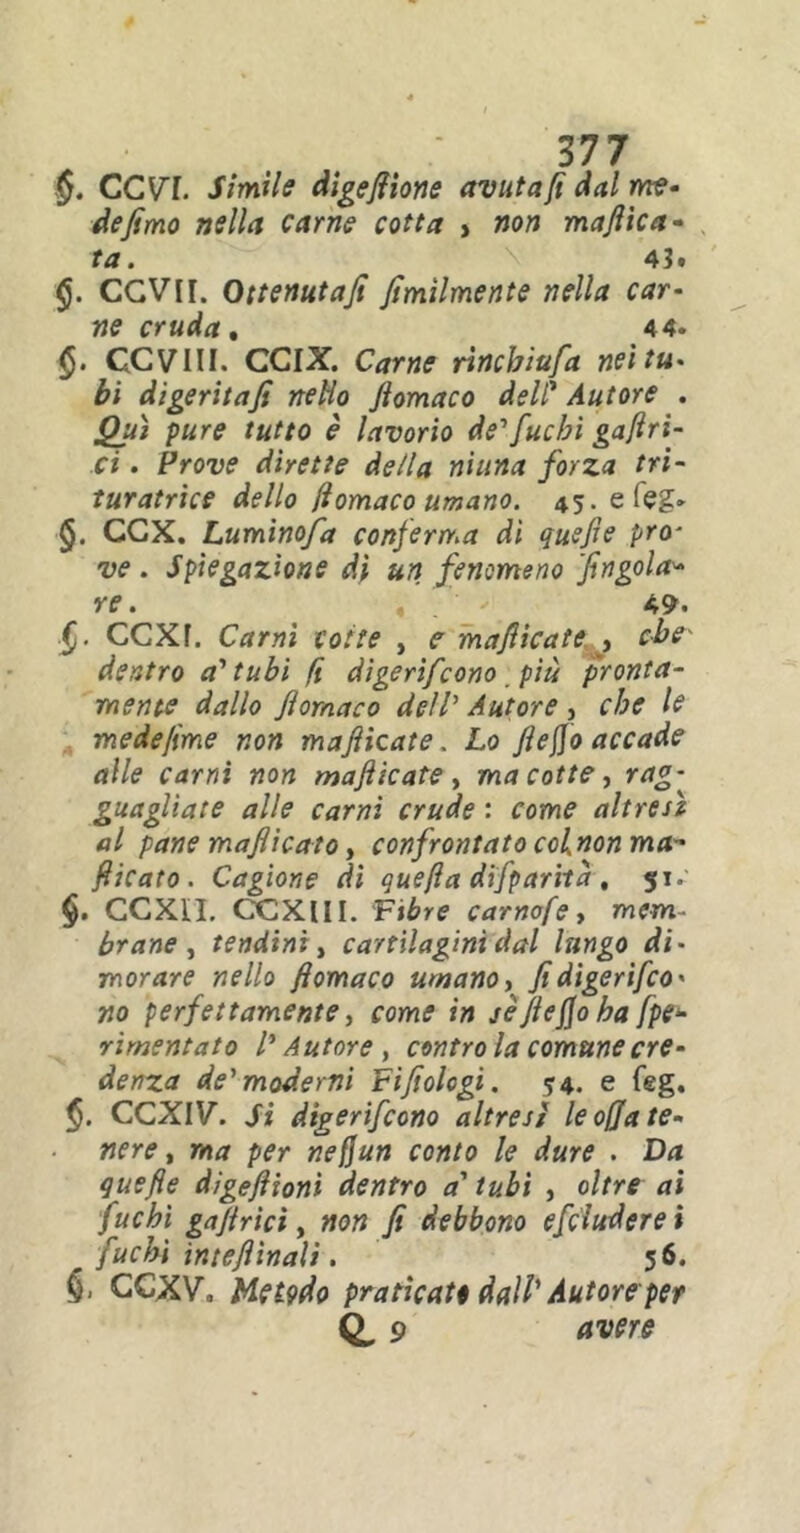 377
§. CCVI. Simile digeſtione avutaſi dal me-
deſimo nella carne cotta, non maſtica-
ta. 43.
§. CCVII. Ottenutaſi ſimilmente nella car-
ne cruda. 44.
§. CCVIII. CCIX. Carne rinchiuſa nei tu-
bi digeritaſi nello ſtomaco dell' Autore.
Quì pure tutto è lavorio de' ſuchi gaſtri-
ci. Prove dirette della niuna forza tri-
turatrice dello ſtomaco umano. 45. e ſeg.
§. CCX. Luminoſa conferma di queſte pro-
ve. Spiegazione di un fenomeno ſingola-
re. 49.
§. CCXI. Carni cotte, e maſticate, che
dentro a' tubi ſi digeriſcono più pronta-
mente dallo ſtomaco dell' Autore, che le
medeſime non maſticate. Lo ſteſſo accade
alle carni non maſticate, ma cotte, rag-
guagliate alle carni crude: come altresì
al pane maſticato, confrontato col non ma-
ſticato. Cagione di queſta diſparità. 51.
§. CCXII. CCXIII. Fibre carnoſe, mem-
brane, tendini, cartilagini dal lungo di-
morare nello ſtomaco umano, ſi digeriſco-
no perfettamente, come in sè ſteſſo ha ſpe-
rimentato l' Autore, contro la comune cre-
denza de' moderni Fiſiologi. 54. e ſeg.
§. CCXIV. Si digeriſcono altresì le oſſa te-
nere, ma per neſſun conto le dure. Da
queſte digeſtioni dentro a' tubi, oltre ai
ſuchi gaſtrici, non ſi debbono eſcludere i
ſuchi inteſtinali. 56.
§. CCXV. Metodo praticato dall' Autore per
Q 9 avere